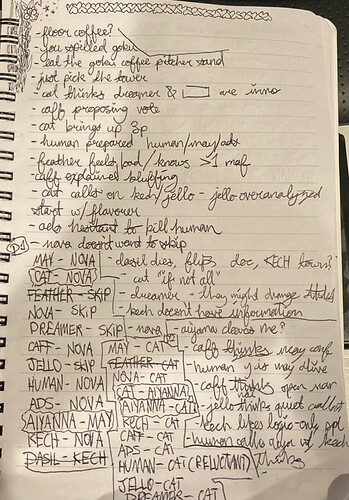 - floor coffee?
- you spilled goku
- eat the goku coffee pitcher sand
- just pick the tower
- cat thinks dreamer & are inno
- caff proposing vote
- cat brings up 3p
- human prepared human/may/ads
- feather feels bad/knows >1 maf
- caff explained bluffing
- cat calls on kech/jello - jello overanalyzed
start w/ flavour
- ads hesitant to kill human
D1 - nova doesn't want to skip
MAY - NOVA - dasil dies, flips doc, KECH town?
CAT - NOVA - cat "if not all"
FEATHER - SKIP - dreamer - they might change
NOVA - SKIP - kech doesnt have information
DREAMER - SKIP - nova - aiyanna clears me?
CAFF - NOVA MAY - CAT - caff thinks may conf
JELLO - SKIP FEATHER - CAT - human y is may alive
HUMAN - NOVA NOVA - CAT - caff thinks open
ADS - NOVA CAT - AIYANNA - jello thinks quiet
AIYANNA - MAY AIYANNA - CAT - kech likes logic-only ppl
KECH - NOVA KECH - CAT - human
DASIL - KECH CAFF - CAT
ADS - CAT
HUMAN - CAT (RELUCTANT)
JELLO - CAT
DREAMER - CAT